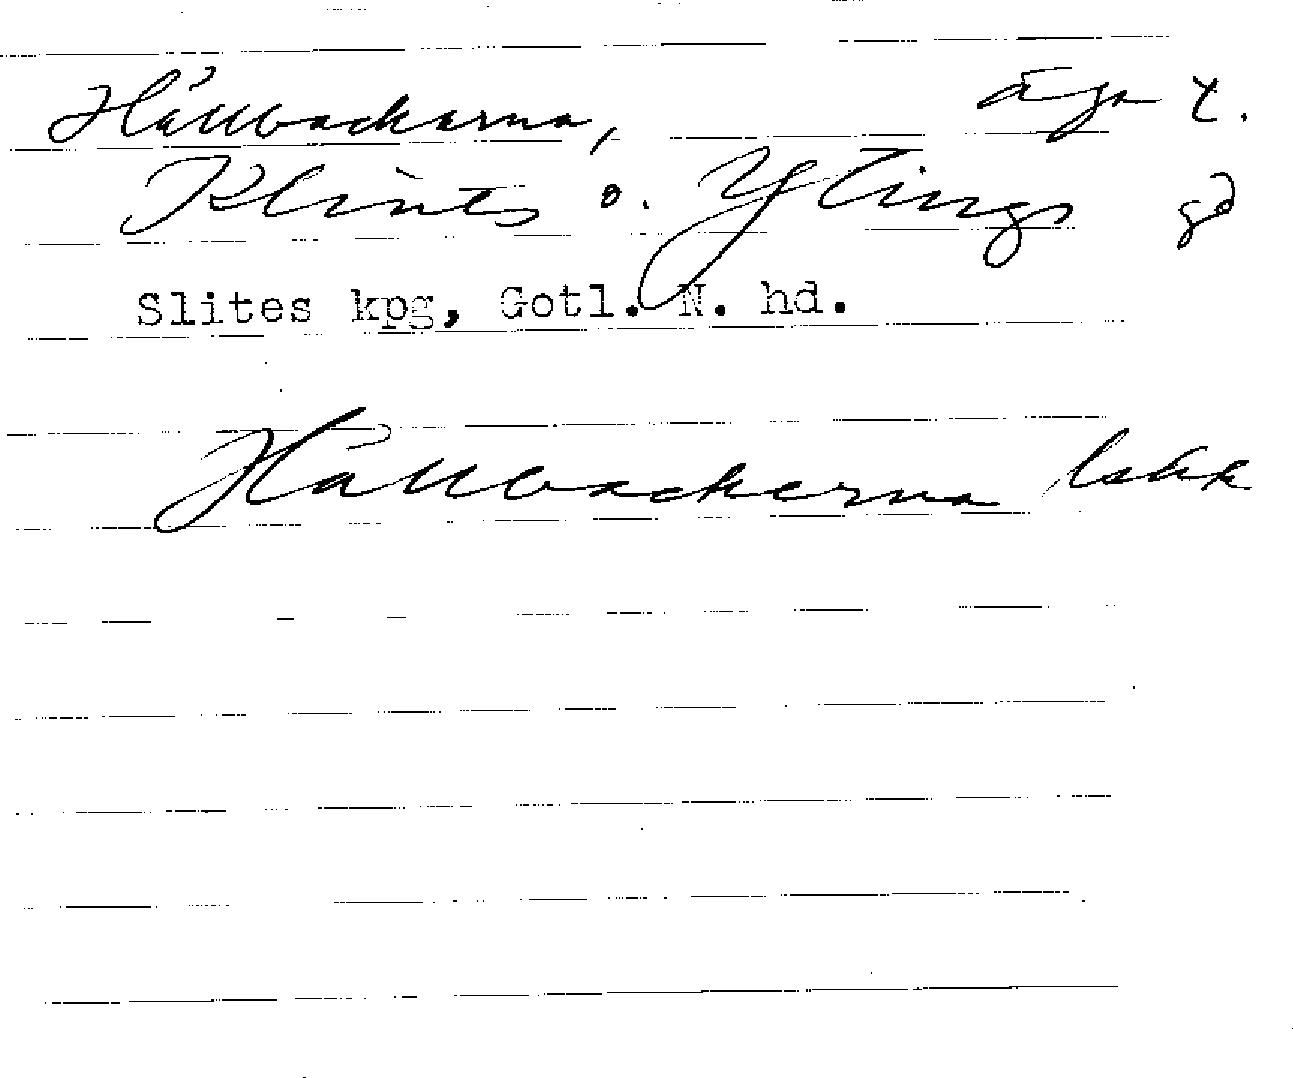 Hällbackarna, äga t.
Klints o. Ytings gd
Slites kpg, Gotl. N. hd.
Hällbackerna lakk